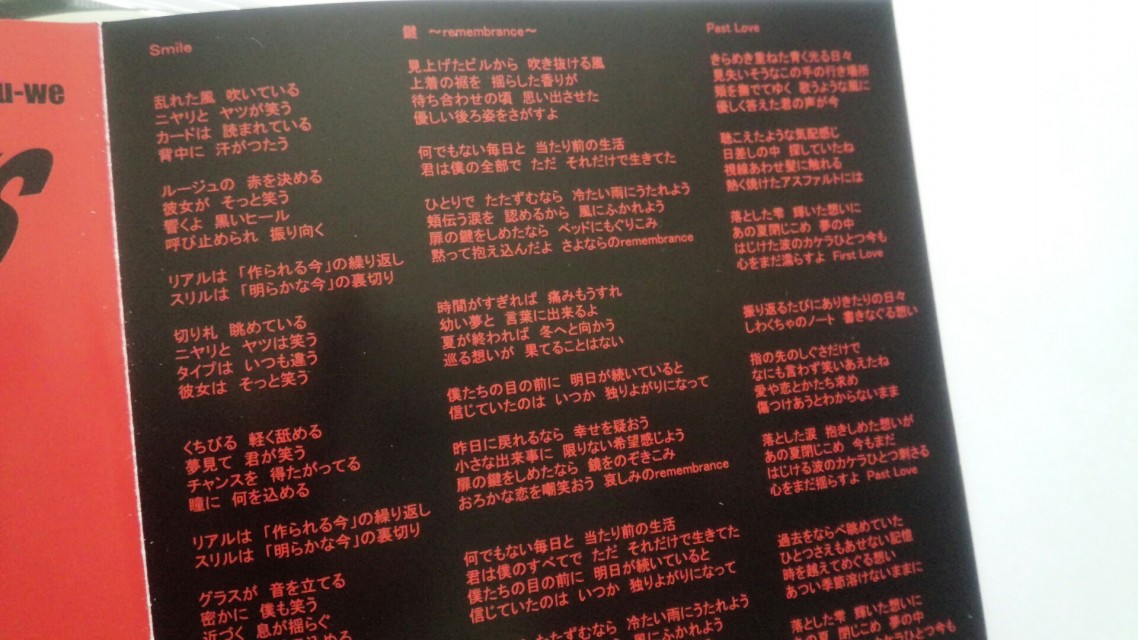 u-we
s
Smile
乱れた風 吹いている
ニヤリと ヤツが笑う
カードは 読まれている
背中に 汗がつたう
ルージュの 赤を決める
彼女が そっと笑う
響くよ 黒いヒール
呼び止められ 振り向く
リアルは 「作られる今」の繰り返し
スリルは 「明らかな今」の裏切り
切り札 眺めている
ニヤリと ヤツは笑う
タイプは いつも違う
彼女は そっと笑う
くちびる 軽く舐める
夢見て 君が笑う
チャンスを 得たがってる
瞳に 何を込める
リアルは 「作られる今」の繰り返し
スリルは 「明らかな今」の裏切り
グラスが 音を立てる
密かに 僕も笑う
近づく 息が揺らぐ
鍵 ～remembrance～
見上げたビルから 吹き抜ける風
上着の裾を 揺らした香りが
待ち合わせの頃 思い出させた
優しい後ろ姿をさがすよ
何でもない毎日と 当たり前の生活
君は僕の全部で ただ それだけで生きてた
ひとりで たたずむなら 冷たい雨にうたれよう
頬伝う涙を 認めるから 風にふかれよう
扉の鍵をしめたなら ベッドにもぐりこみ
黙って抱え込んだよ さよならのremembrance
時間がすぎれば 痛みもうすれ
幼い夢と 言葉に出来るよ
夏が終われば 冬へと向かう
巡る想いが 果てることはない
僕たちの目の前に 明日が続いていると
信じていたのは いつか 独りよがりになって
昨日に戻れるなら 幸せを疑おう
小さな出来事に 限りない希望感じよう
扉の鍵をしめたなら 鏡をのぞきこみ
おろかな恋を嘲笑おう 哀しみのremembrance
何でもない毎日と 当たり前の生活
君は僕のすべてで ただ それだけで生きてた
僕たちの目の前に 明日が続いていると
信じていたのは いつか 独りよがりになって
たたずむなら 冷たい雨にうたれよう
風にふかれよう
Past Love
きらめき重ねた青く光る日々
見失いそうなこの手の行き場所
頬を撫でてゆく 歌うような風に
優しく答えた君の声が今
聴こえたような気配感じ
日差しの中 探していたね
視線あわせ髪に触れる
熱く焼けたアスファルトには
落とした雫 輝いた想いに
あの夏閉じこめ 夢の中
はじけた波のカケラひとつ今も
心をまだ濡らすよ First Love
振り返るたびにありきたりの日々
しわくちゃのノート 書きなぐる想い
指の先のしぐさだけで
なにも言わず笑いあえたね
愛や恋とかたち求め
傷つけあうとわからないまま
落とした涙 抱きしめた想いが
あの夏閉じこめ 今もまだ
はじける波のカケラひとつ刺さる
心をまだ揺らすよ Past Love
過去をならべ眺めていた
ひとつさえもあせない記憶
時を越えてめぐる想い
あつい季節溶けないままに
落とした雫 輝いた想いに
あの夏 閉じこめ 夢の中
はじけた波のカケラひとつ今も